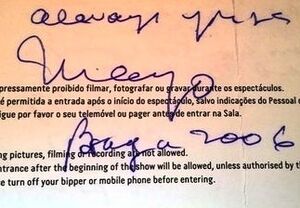 always yours
Braga 2006
pressamente proibido filmar, fotografar ou gravar durante os espectáculos.
é permitida a entrada após o início do espectáculo, salvo indicações do Pessoal
igue por favor o seu telemóvel ou pager antes de entrar na Sala.
ng pictures, filming or recording are not allowed.
ntrance after the beginning of the show will be allowed, unless authorised by th
e turn off your bipper or mobile phone before entering.